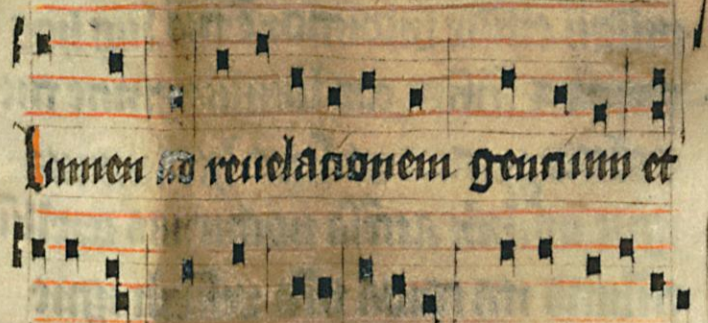 Lumen ad reuelationem gentium et